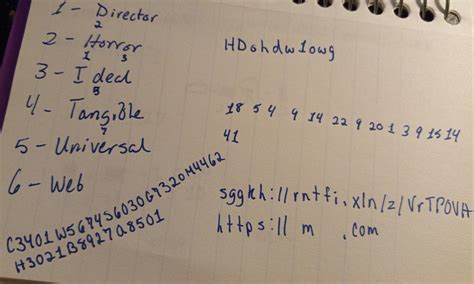 1 - Director
2
2 - Horror
1 3
3 - Ideal
5
4 - Tangible
7
5 - Universal
6 - Web
C3401W5674S6030G7320M4462
H3021B8927Q8501
HDohdw1owg
18 5 4 9 14 22 9 20 1 3 9 15 14
41
sggkh://rntfi.xln/z/VrTPOVA
https:// m .com